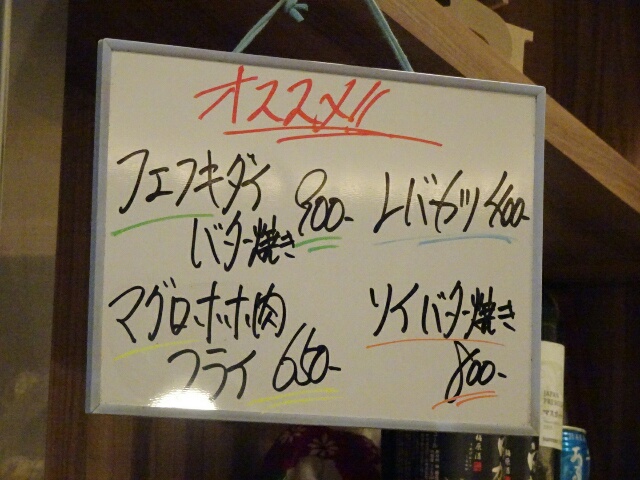 オススメ!!
フエフキダイ
バター焼き 900-
レバカツ 400-
マグロホホ肉
フライ 650-
ソイバター焼き
800-